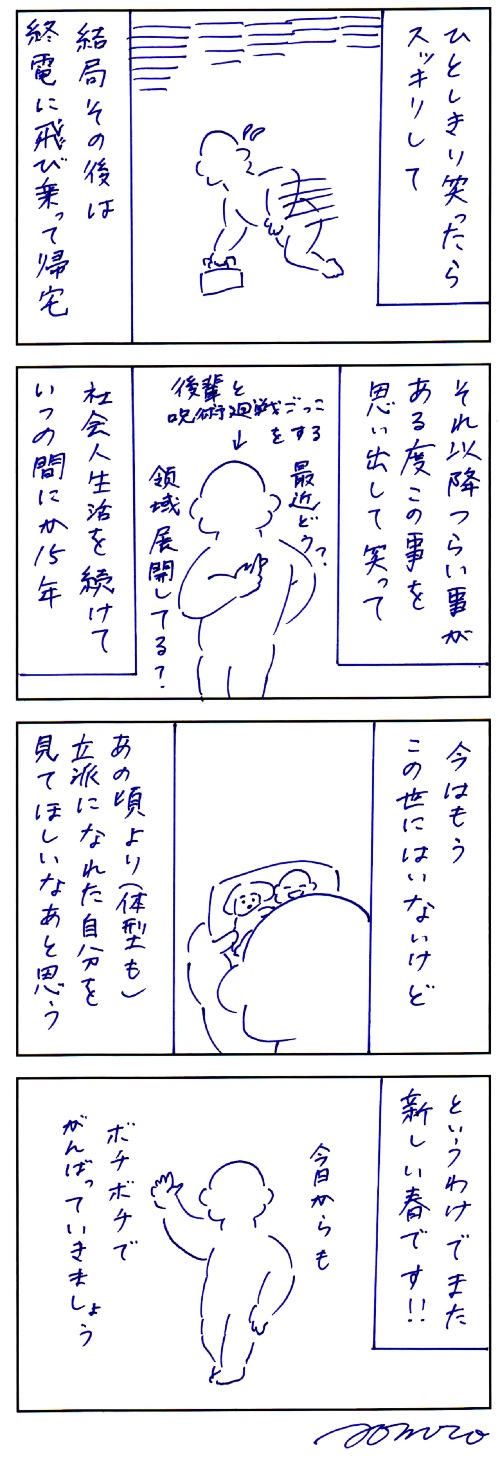 ひとしきり笑ったら
スッキリして
結局その後は
終電に飛び乗って帰宅
それ以降つらい事が
ある度この事を
思い出して笑って
後輩と
呪術廻戦ごっこ
をする
↓
最近どう?
領域展開してる?
社会人生活を続けて
いつの間にか15年
今はもう
この世にはいないけど
あの頃より(体型も)
立派になれた自分を
見てほしいなあと思う
というわけでまた
新しい春です!!
今日からも
ボチボチで
がんばっていきましょう